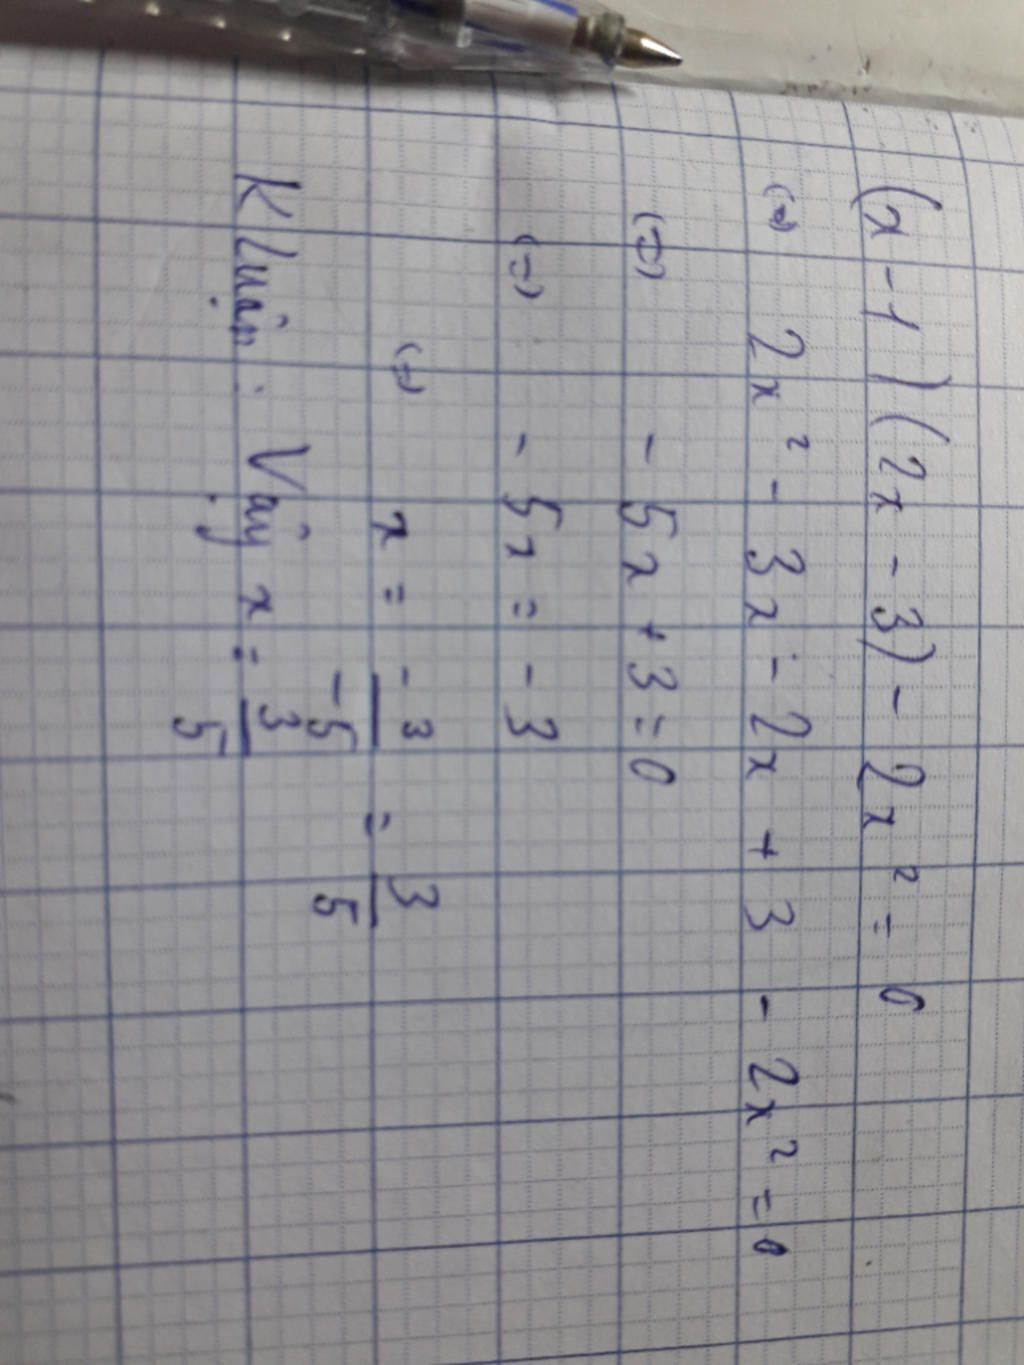 (x - 1)(2x - 3) - 2x² = 0
(=) 2x² - 3x - 2x + 3 - 2x² = 0
(=) - 5x + 3 = 0
(=) - 5x = - 3
(=) x = -3/-5 = 3/5
K Luận : Vậy x = 3/5